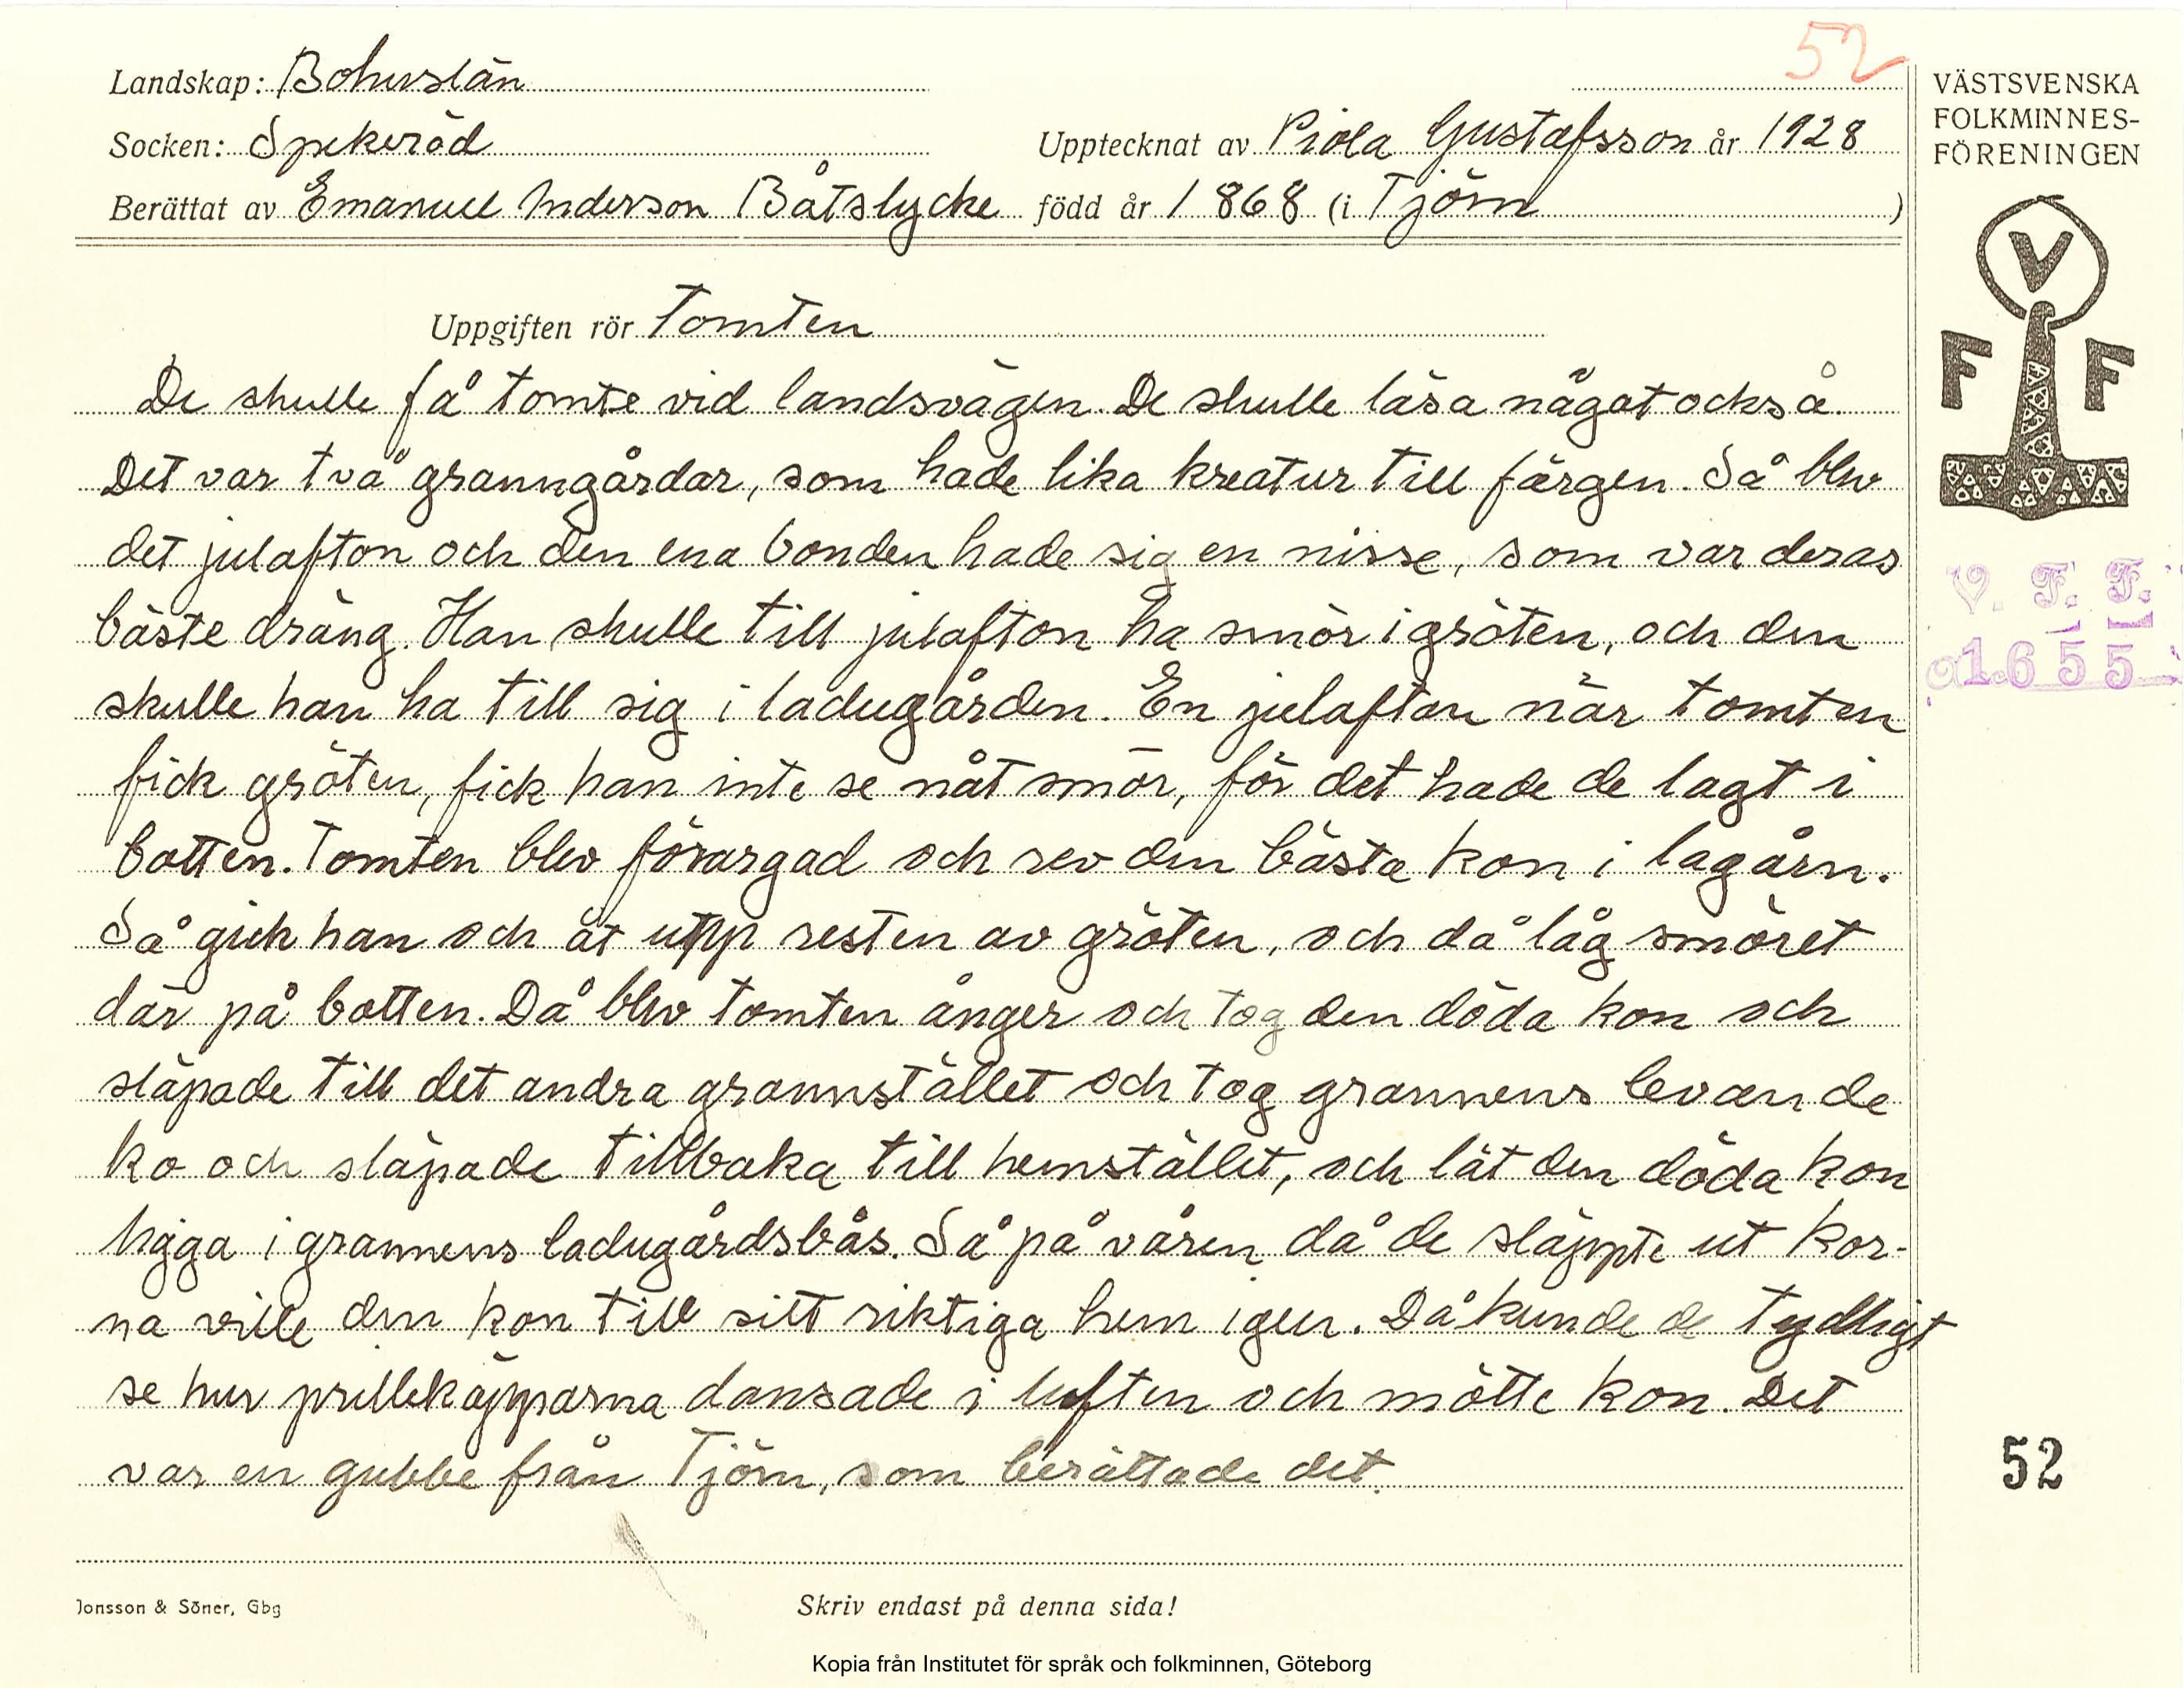 52
Landskap: Bohuslän
Socken: Spekeröd
Upptecknat av Viola Gustafsson år 1928
Berättat av Emanuel Anderson Båtslycke född år 1868 (i Tjörn)
VÄSTSVENSKA
FOLKMINNES-
FÖRENINGEN
V
F F
V. F. F.
1655
Uppgiften rör Tomten
De skulle få tomte vid landsvägen. De skulle läsa något också.
Det var två granngårdar, som hade lika kreatur till färgen. Så blev
det julafton och den ena bonden hade sig en nisse, som var deras
bäste dräng. Han skulle till julafton ha smör i gröten, och den
skulle han ha till sig i ladugården. En julafton när tomten
fick gröten, fick han inte se nåt smör, för det hade de lagt i
botten. Tomten blev förargad och rev den bästa kon i lagårn.
Så gick han och åt upp resten av gröten, och då låg smöret
där på botten. Då blev tomten ånger och tog den döda kon och
släpade till det andra grannstället och tog grannens levande
ko och släpade tillbaka till hemstället, och lät den döda kon
ligga i grannens ladugårdsbås. Så på våren då de släppte ut kor-
na ville den kon till sitt riktiga hem igen. Då kunde de tydligt
se hur prillekäpparna dansade i luften och mötte kon. Det
var en gubbe från Tjörn, som berättade det.
52
Jonsson & Söner, Gbg
Skriv endast på denna sida!
Kopia från Institutet för språk och folkminnen, Göteborg